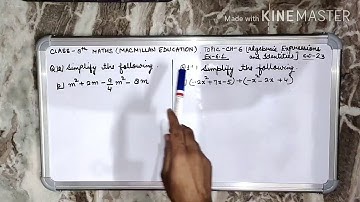 Made With
KINEMASTER
CLASS - 8th MATHS (MACMILLAN EDUCATION)
TOPIC - CH - 6 [Algebraic Expressions
Ex - 6.1 and Identities]
Simplify the following.
m² + 2m - m² - 8m
Simplify the following
(-2x² + 7x - 5) + (-x² - 2x + 4)